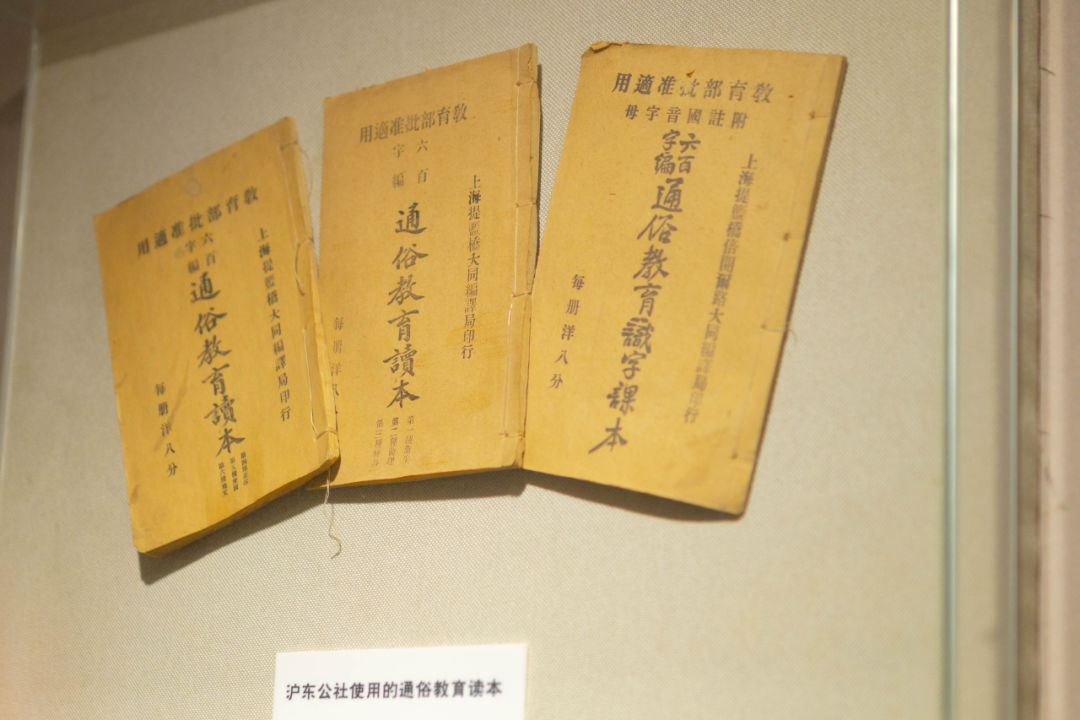 用適准批部育教
六百
字編
通俗教育讀本
上海提籃橋大同編譯局印行
每册洋八分
用適准批部育教
六百
字編
通俗教育讀本
上海提籃橋大同編譯局印行
每册洋八
用適准批部育教
母字音國註附
六百
字編
通俗教育識字課本
上海提籃橋倍開爾路大同編譯局印行
每册洋八分
沪东公社使用的通俗教育读本